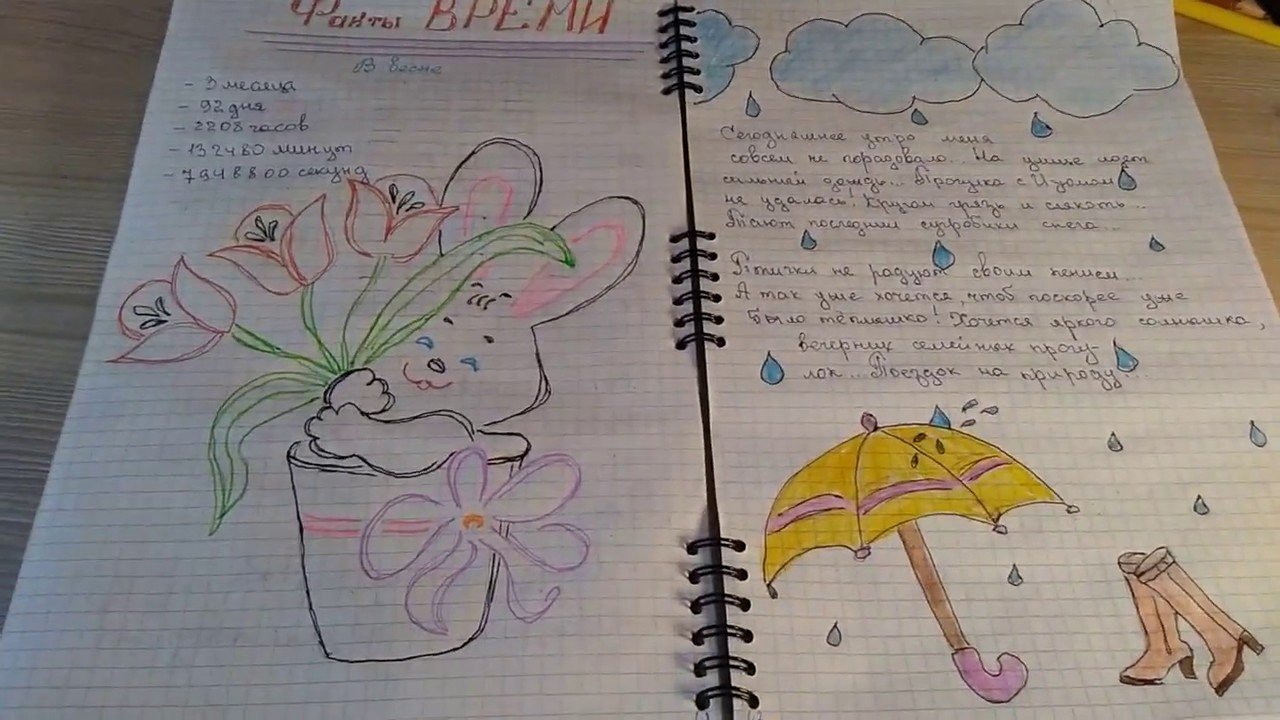 Факты ВРЕМИ
В весне
- 3 месяца
- 92 дня
- 2208 часов
- 132480 минут
- 7948800 секунд
Сегодняшнее утро меня
совсем не порадовало... На улице идет
сильный дождь... Прогулка с
не удалась. Кругом грязь и слякоть...
Тают последнии сугробики снега...
Птички не радуют своим пением...
А так уже хочется, чтоб поскорее уже
было тёплышко! Хочется яркого солнышка,
вечерних семейных прогу-
лок... Поездок на природу...